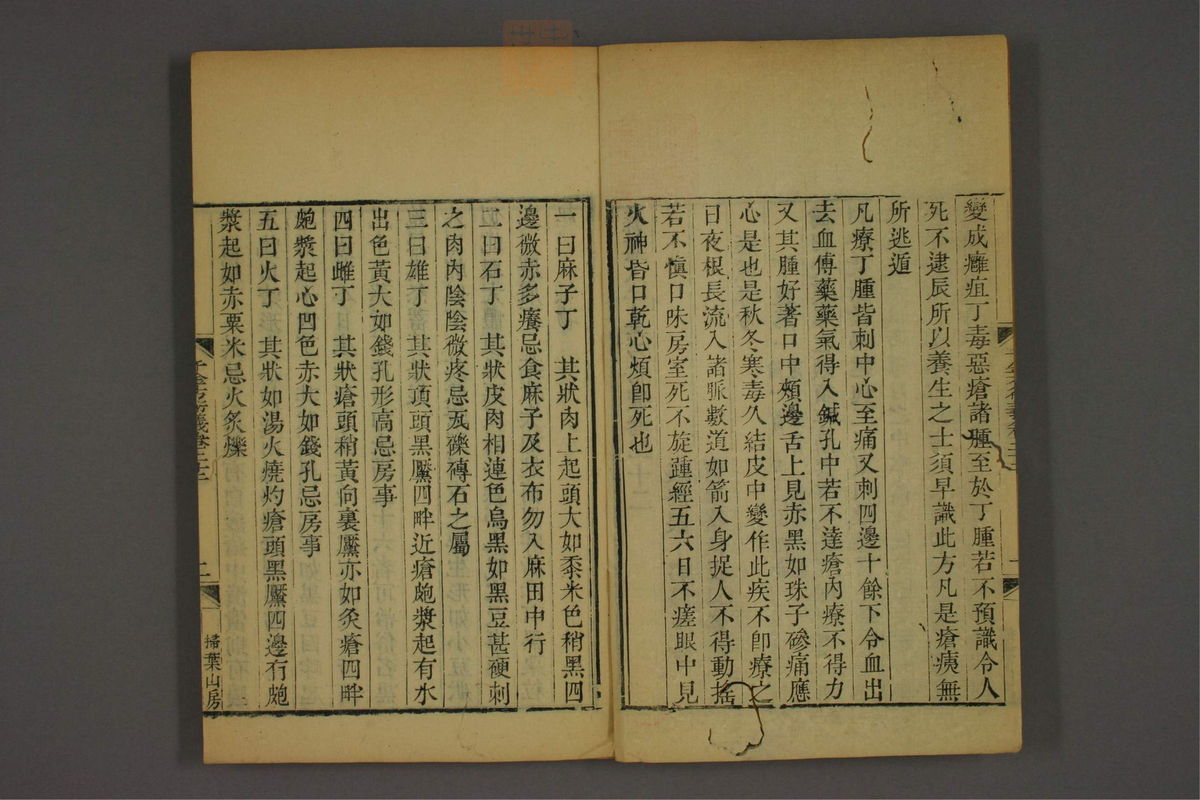 變成癰疽丁毒惡瘡諸腫至於丁腫若不預識令人
死不逮辰所以養生之士須早識此方凡是瘡痍無
所逃遁
凡療丁腫皆刺中心至痛又刺四邊十餘下令血出
去血傅藥藥氣得入鍼孔中若不達瘡內療不得力
又其腫好著口中頰邊舌上見赤黑如珠子磣痛應
心是也是秋冬寒毒久結皮中變作此疾不卽療之
日夜根長流入諸脈數道如箭入身捉人不得動搖
若不愼口味房室死不旋踵經五六日不瘥眼中見
火神昏口乾心煩卽死也
一曰麻子丁　其狀肉上起頭大如黍米色稍黑四
邊微赤多癢忌食麻子及衣布勿入麻田中行
二曰石丁　其狀皮肉相連色烏黑如黑豆甚硬刺
之肉內陰陰微疼忌瓦礫磚石之屬
三曰雄丁　其狀頂頭黑黶四畔近瘡皰漿起有水
出色黃大如錢孔形高忌房事
四曰雌丁　其狀瘡頭稍黃向裏黶亦如灸瘡四畔
皰漿起心凹色赤大如錢孔忌房事
五曰火丁　其狀如湯火燒灼瘡頭黑黶四邊有皰
漿起如赤粟米忌火炙爍
千金方衍義卷二十二
二
掃葉山房